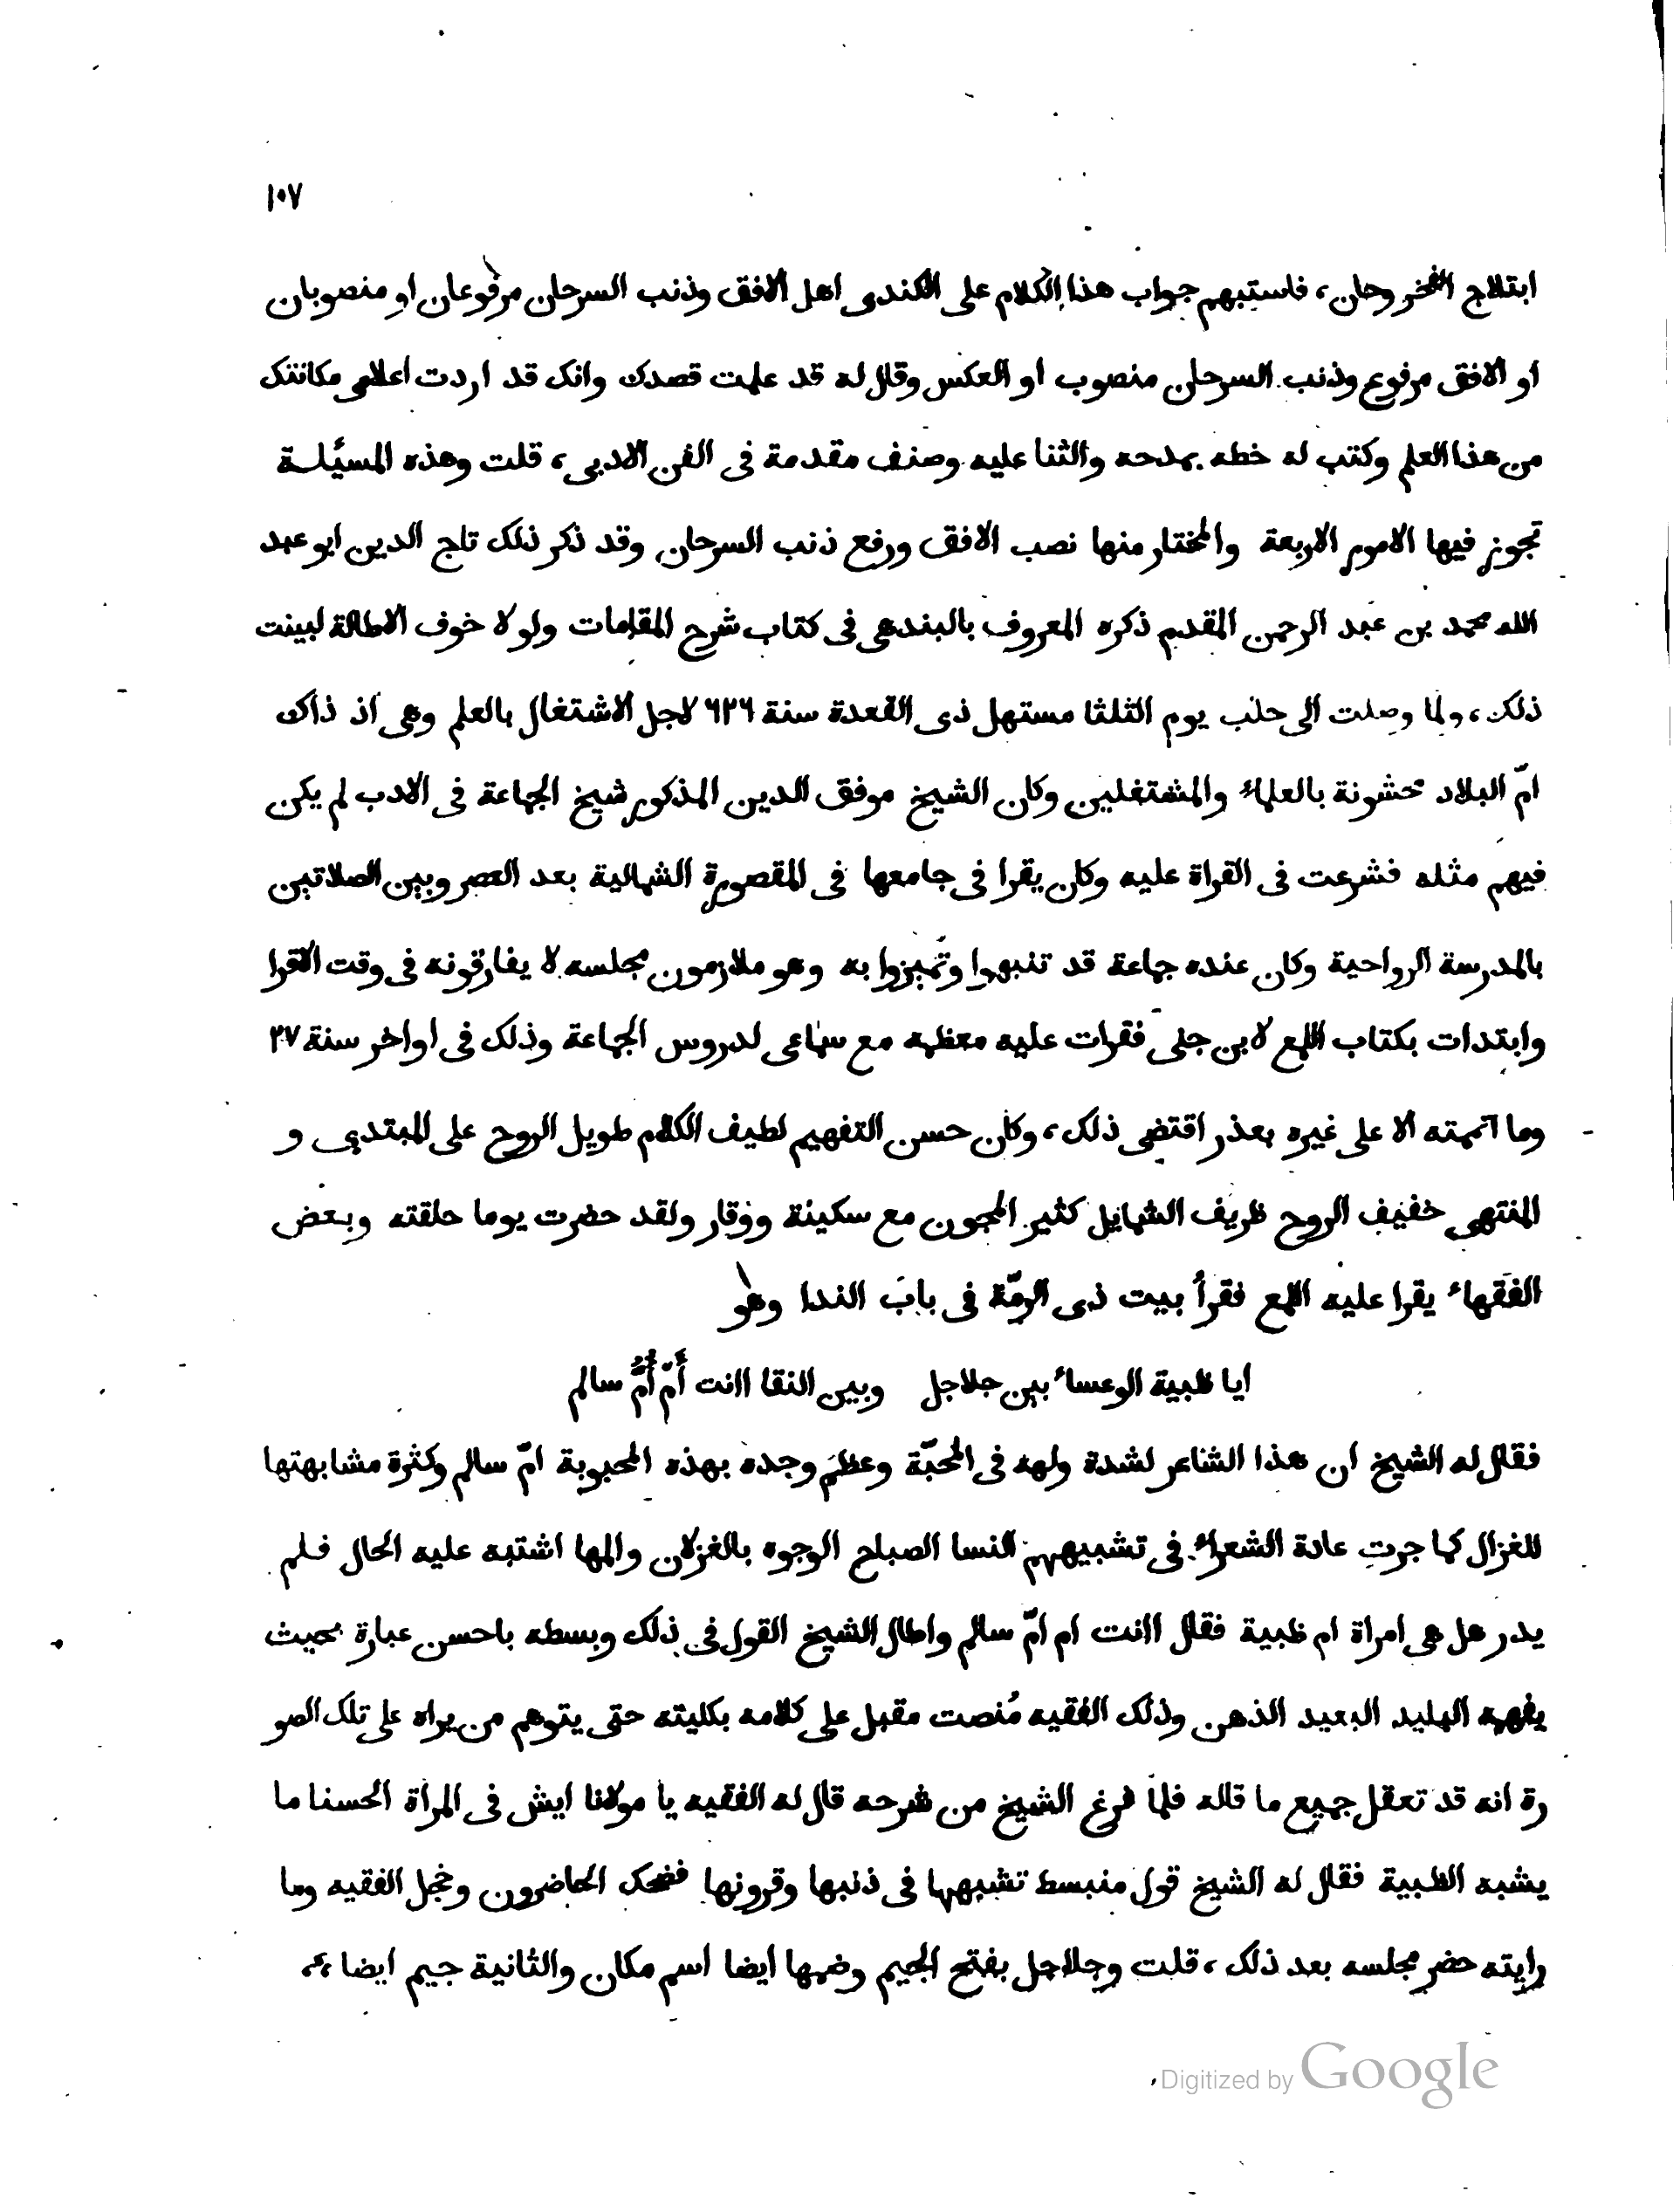 ١٠٧
ابتلاج الفجر وحان، فاستبهم جواب هذا الكلام على الكندى اهل الافق وذنب السرحان مرفوعان او منصوبان
او الافق مرفوع وذنب السرحان منصوب او العكس وقال له قد علمت قصدك وانك قد اردت اعلامى مكانتك
من هذا العلم وكتب له خطه بمدحه والثنا عليه وصنف مقدمة فى الفن الادبى، قلت وهذه المسئلة
تجوز فيها الامور الاربعة والمختار منها نصب الافق ورفع ذنب السرحان وقد ذكر ذلك تاج الدين ابو عبد
الله محمد بن عبد الرحمن المقدم ذكره المعروف بالبندهى فى كتاب شرح المقامات ولولا خوف الاطالة لبينت
ذلك، ولما وصلت الى حلب يوم الثلثا مستهل ذى القعدة سنة ٦٢٦ لاجل الاشتغال بالعلم وهى اذ ذاك
امّ البلاد محشونة بالعلماء والمشتغلين وكان الشيخ موفق الدين المذكور شيخ الجماعة فى الادب لم يكن
فيهم مثله فشرعت فى القراة عليه وكان يقرا فى جامعها فى المقصورة الشمالية بعد العصر وبين الصلاتين
بالمدرسة الرواحية وكان عنده جماعة قد تنبهوا وتميزوا به وهو ملازمون مجلسه لا يفارقونه فى وقت الاقرا
وابتدات بكتاب اللمع لابن جنى فقرات عليه معظمه مع سماعى لدروس الجماعة وذلك فى اواخر سنة ٢٧
وما اتممته الا على غيره بعذر اقتضى ذلك، وكان حسن التفهيم لطيف الكلام طويل الروح على المبتدى و
المنتهى خفيف الروح ظريف الشمايل كثير المجون مع سكينة ووقار ولقد حضرت يوما حلقته وبعض
الفقهاء يقرا عليه اللمع فقرأ بيت ذى الرمّة فى باب الندا وهو
ايا ظبية الوعساء بين جلاجل وبين النقا اانت أَمّ أُمُّ سالم
فقال له الشيخ ان هذا الشاعر لشدة ولهه فى المحبّة وعظم وجده بهذه المحبوبة امّ سالم وكثرة مشابهتها
للغزال كما جرت عادة الشعراء فى تشبيههم النسا الصباح الوجوه بالغزلان والمها اشتبه عليه الحال فلم
يدر هل هى امراة ام ظبية فقال اانت ام امّ سالم واطال الشيخ القول فى ذلك وبسطه باحسن عبارة بحيث
يفهمه البليد البعيد الذهن وذلك الفقيه مُنصت مقبل على كلامه بكليته حتى يتوهم من يراه على تلك الصو
رة انه قد تعقل جميع ما قاله فلما فرغ الشيخ من شرحه قال له الفقيه يا مولانا ايش فى المراة الحسنا ما
يشبه الظبية فقال له الشيخ قول منبسط تشبهها فى ذنبها وقرونها فضحك الحاضرون وخجل الفقيه وما
رايته حضر مجلسه بعد ذلك، قلت وجلاجل بفتح الجيم وضمها ايضا اسم مكان والثانية جيم ايضا
Digitized by Google